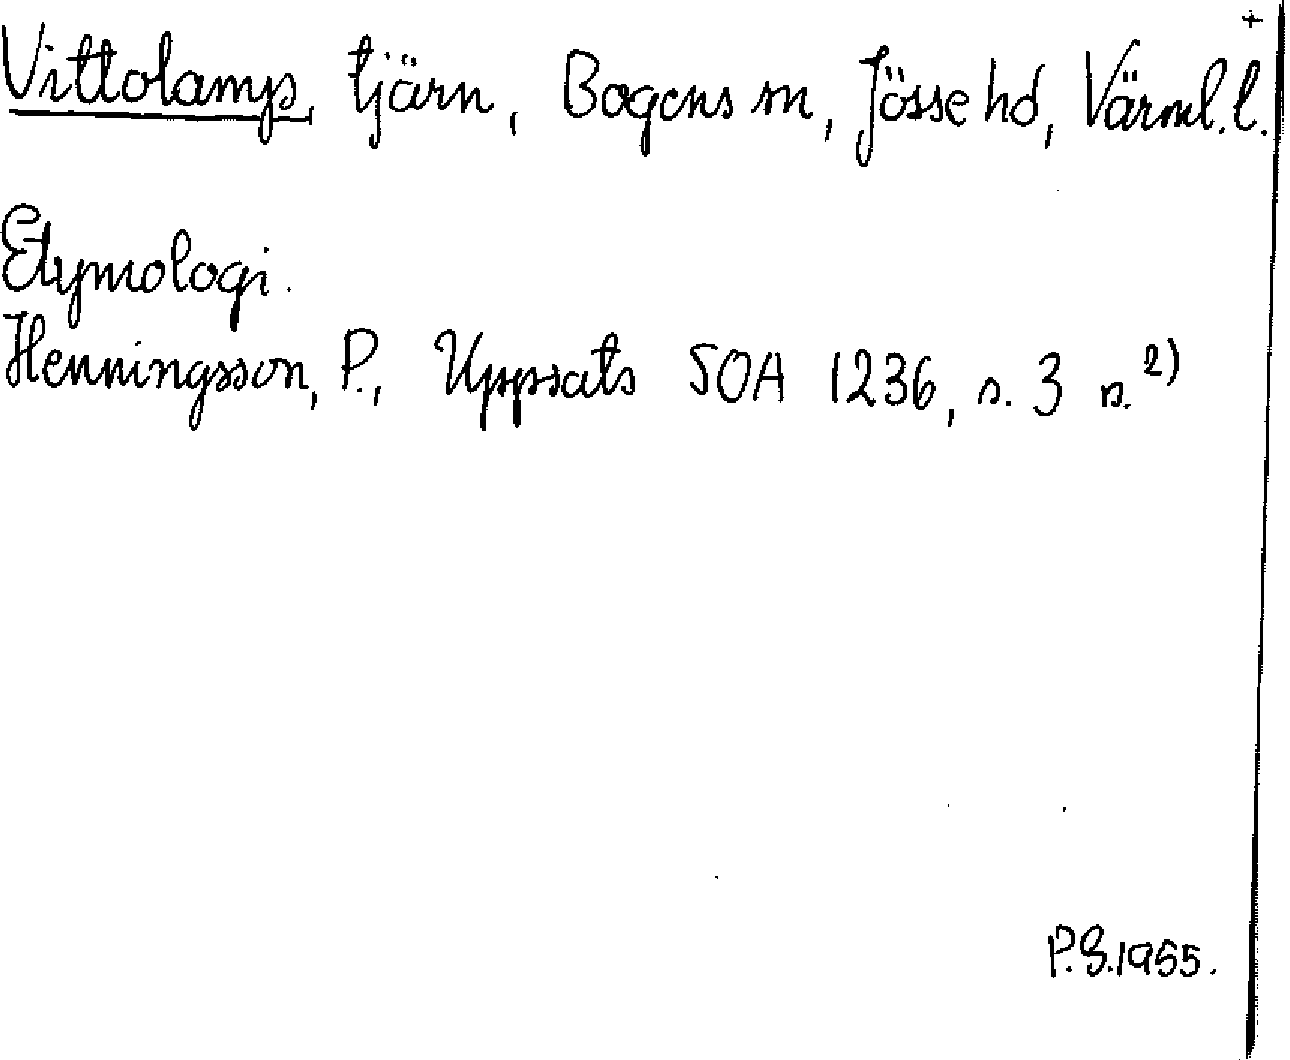 +
Vittolamp, tjärn, Bogens sn, Jösse hd, Värml. l.
Etymologi.
Henningsson, P., Uppsats SOA 1236, s. 3 n. 2)
P.S. 1955.